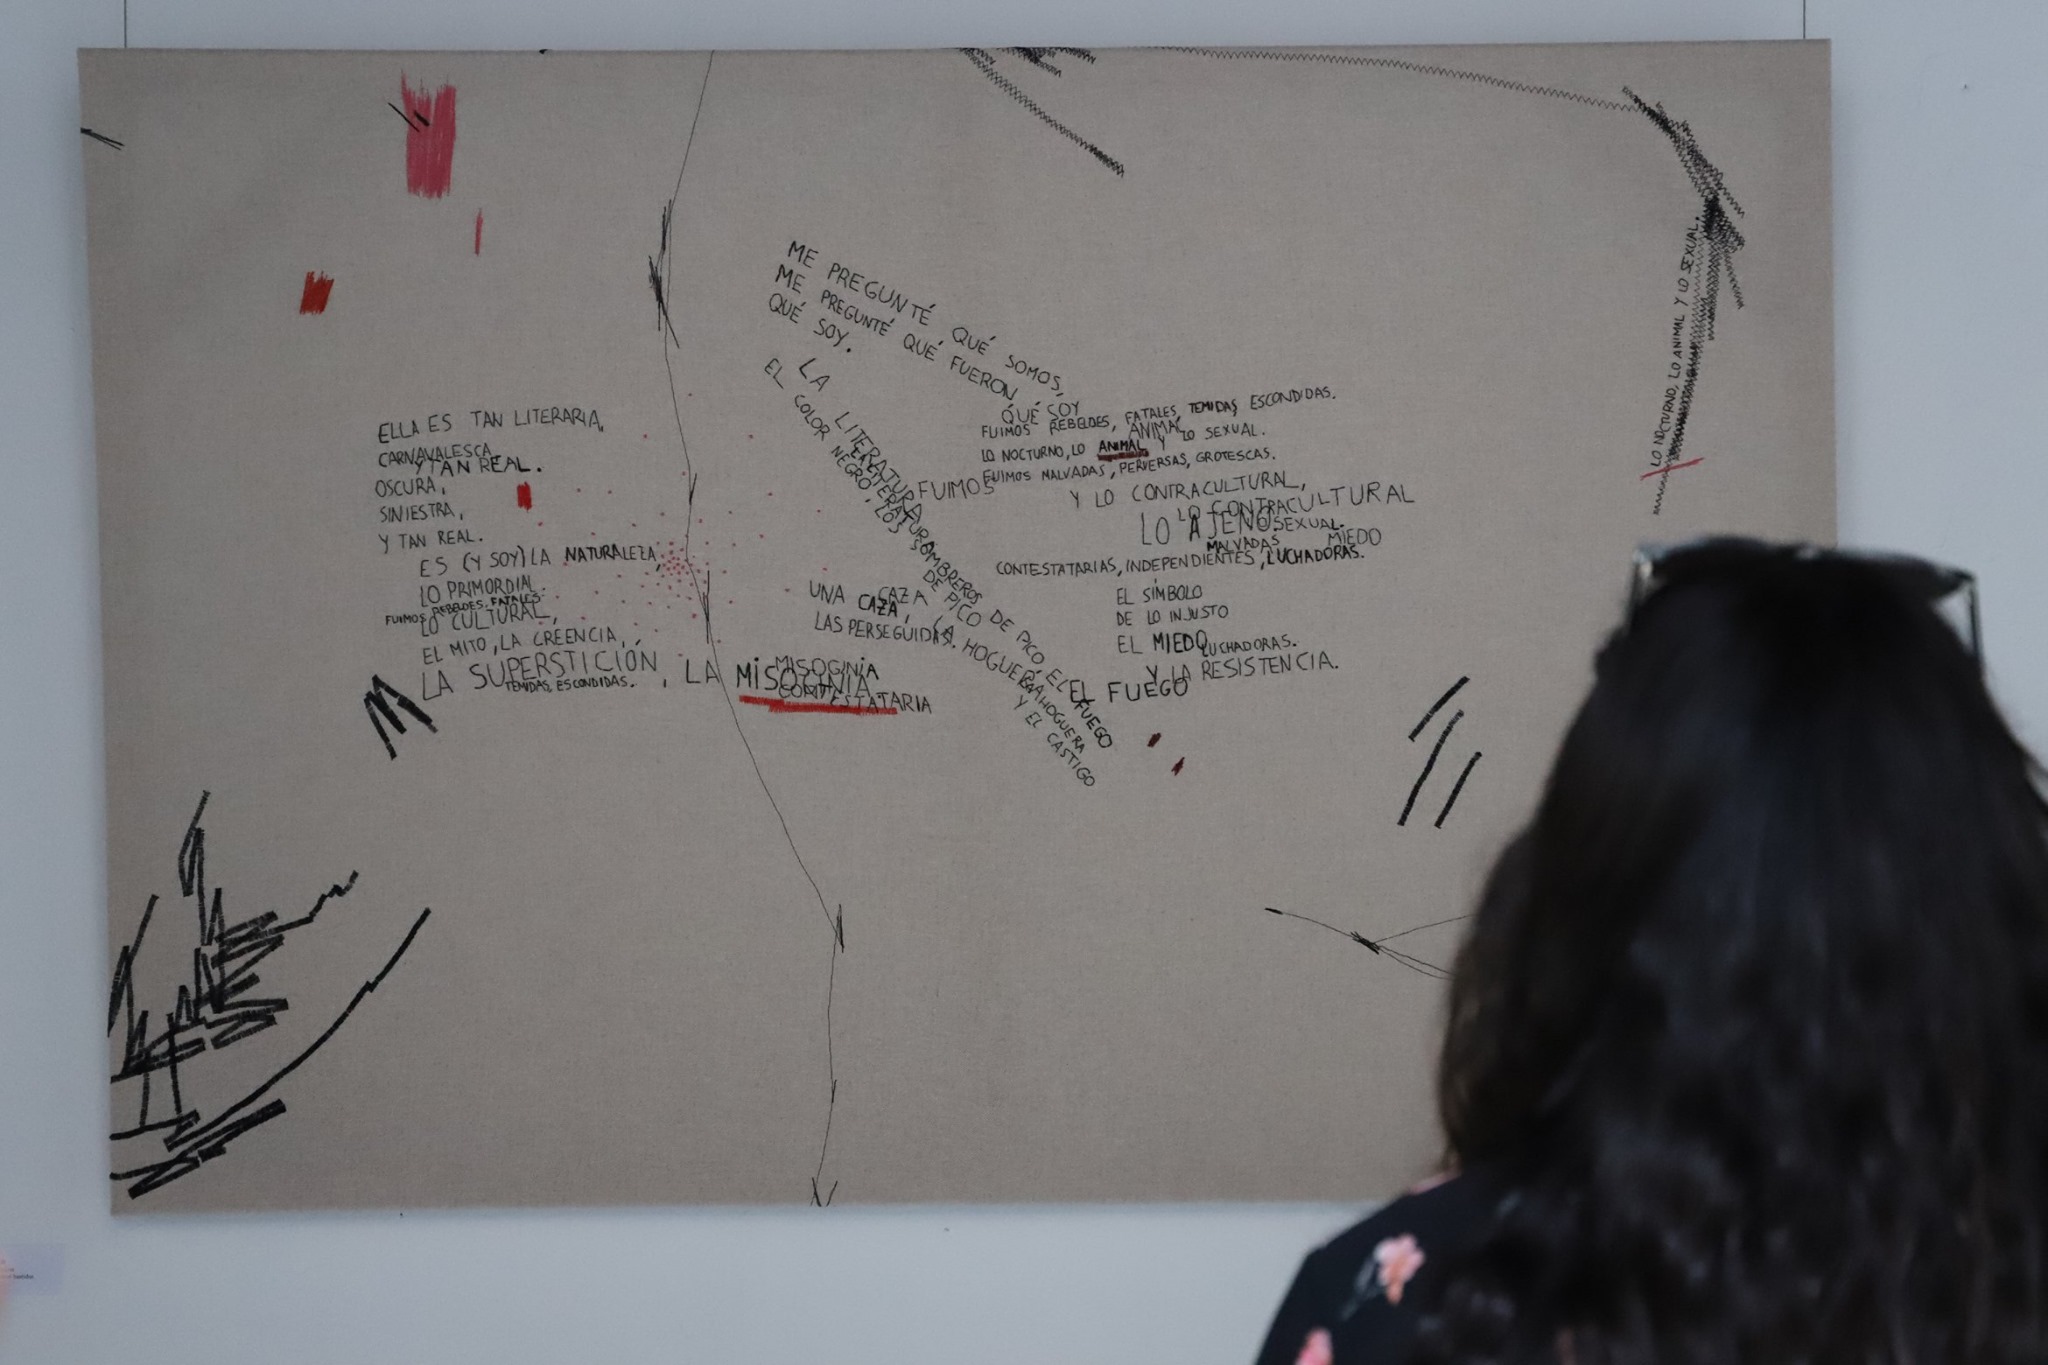 ELLA ES TAN LITERARIA,
CARNAVALESCA,
Y TAN REAL.
OSCURA,
SINIESTRA,
Y TAN REAL.
ES (Y SOY) LA NATURALEZA,
LO PRIMORDIAL.
FUIMOS REBELDES, FATALES.
LO CULTURAL,
EL MITO, LA CREENCIA,
LA SUPERSTICIÓN, LA MISOGINIA.
TEMIDAS, ESCONDIDAS.
MISOGINIA
CONTESTATARIA
ME PREGUNTÉ QUÉ SOMOS,
ME PREGUNTÉ QUÉ FUERON,
QUÉ SOY.
QUÉ SOY
LA LITERATURA
LA LITERATURA
EL COLOR NEGRO, LOS SOMBREROS DE PICO, EL FUEGO
DE PICO
UNA CAZA
CAZA,
LAS PERSEGUIDAS.
LA HOGUERA
LA HOGUERA
Y EL CASTIGO
EL FUEGO
FUIMOS REBELDES, FATALES, TEMIDAS, ESCONDIDAS.
ANIMAL
LO NOCTURNO, LO ANIMAL Y LO SEXUAL.
FUIMOS
FUIMOS MALVADAS, PERVERSAS, GROTESCAS.
Y LO CONTRACULTURAL,
LO CONTRACULTURAL
LO AJENO
SEXUAL.
MALVADAS
MIEDO
CONTESTATARIAS, INDEPENDIENTES, LUCHADORAS.
EL SÍMBOLO
DE LO INJUSTO
EL MIEDO
LUCHADORAS.
Y LA RESISTENCIA.
LO NOCTURNO, LO ANIMAL Y LO SEXUAL.